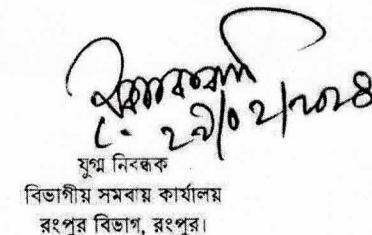 ২৯/০২/২০২৪
যুগ্ম নিবন্ধক
বিভাগীয় সমবায় কার্যালয়
রংপুর বিভাগ, রংপুর।